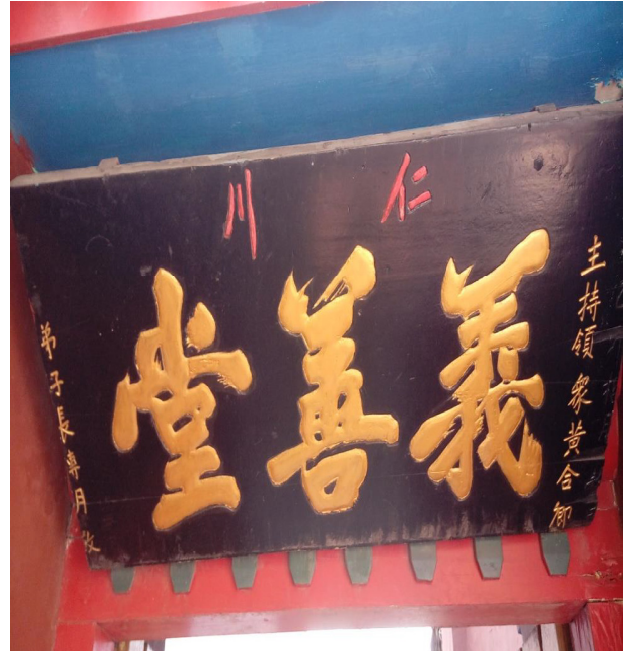 仁川
義善堂
主持領衆黃合卿
弟子長
月